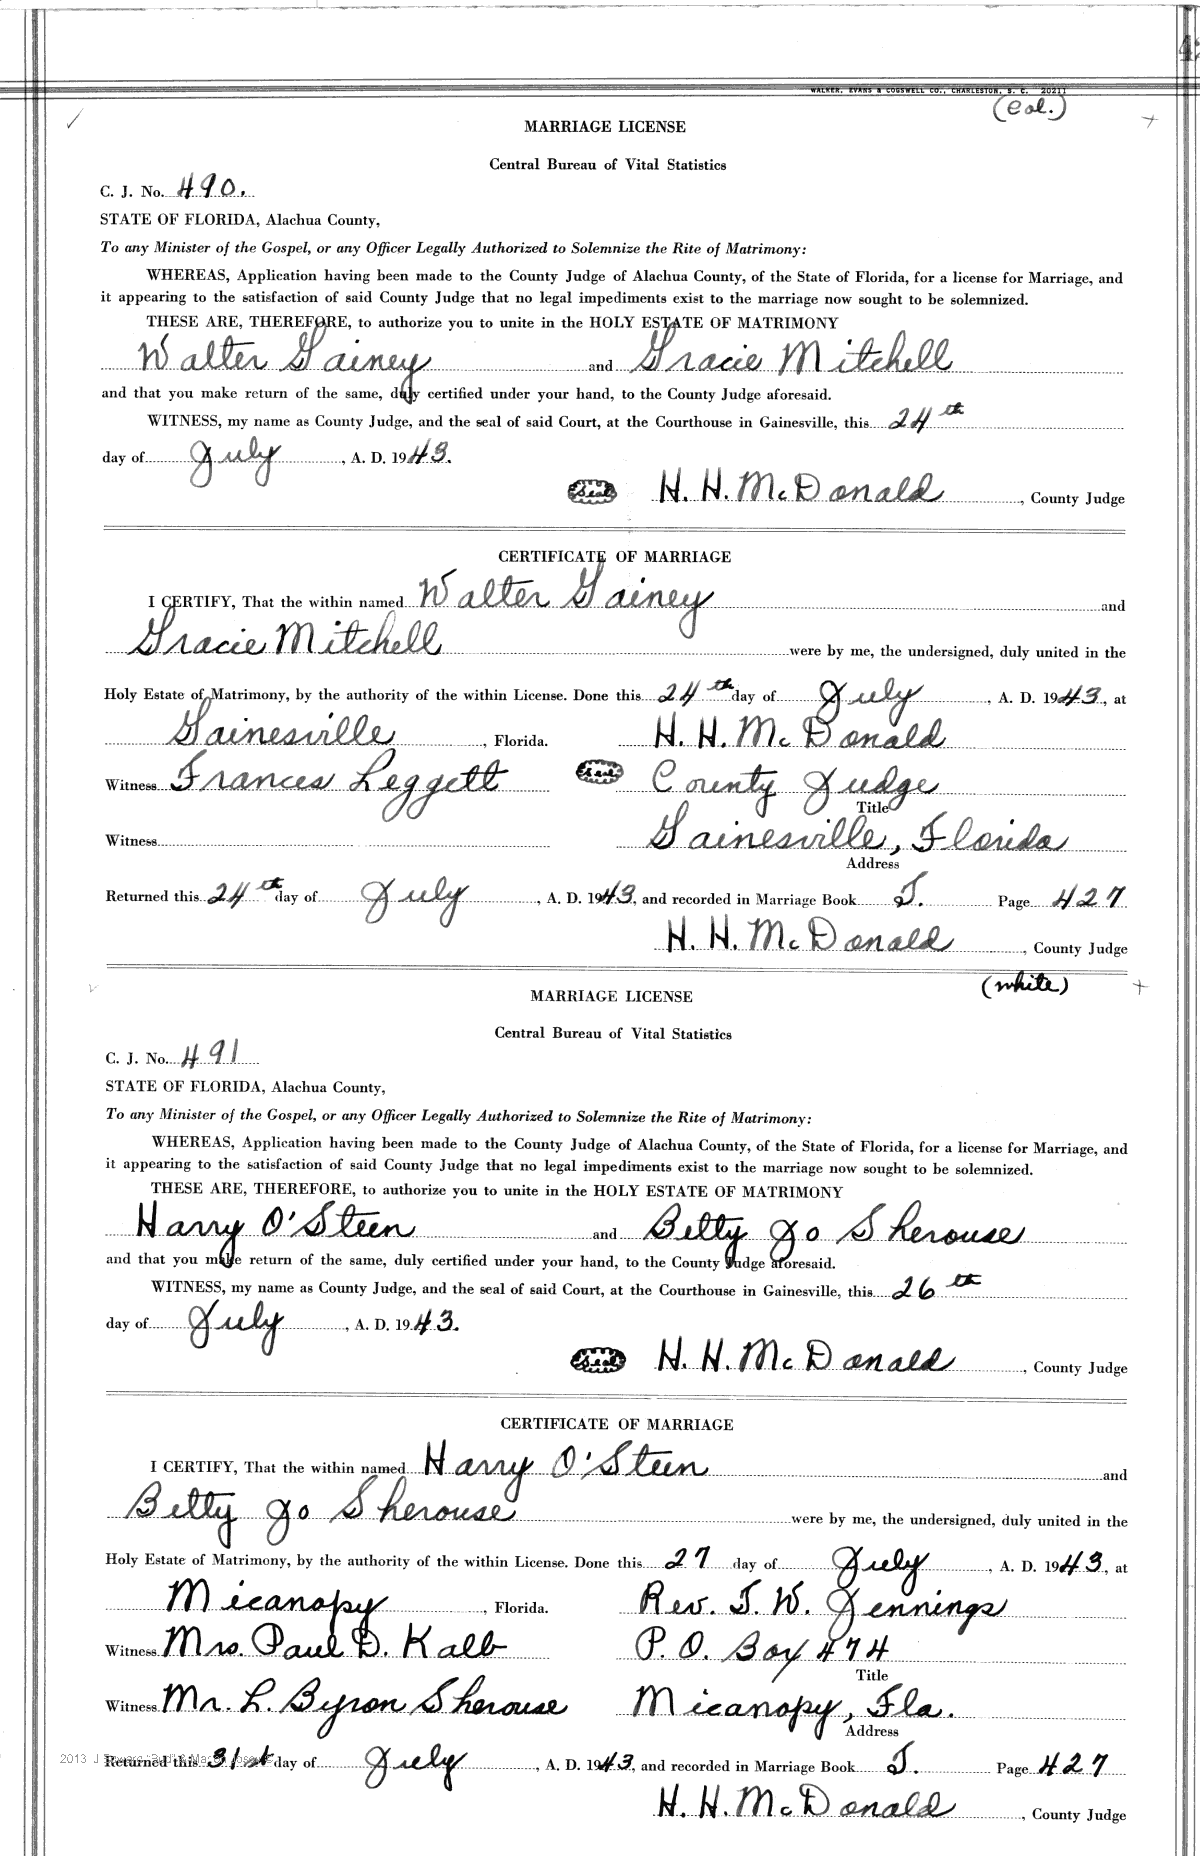 WALKER, EVANS & COGSWELL CO., CHARLESTON, S. C. 20211
(Col.)
MARRIAGE LICENSE
Central Bureau of Vital Statistics
C. J. No. 490.
STATE OF FLORIDA, Alachua County,
To any Minister of the Gospel, or any Officer Legally Authorized to Solemnize the Rite of Matrimony:
WHEREAS, Application having been made to the County Judge of Alachua County, of the State of Florida, for a license for Marriage, and
it appearing to the satisfaction of said County Judge that no legal impediments exist to the marriage now sought to be solemnized.
THESE ARE, THEREFORE, to authorize you to unite in the HOLY ESTATE OF MATRIMONY
Walter Gainey and Gracie Mitchell
and that you make return of the same, duly certified under your hand, to the County Judge aforesaid.
WITNESS, my name as County Judge, and the seal of said Court, at the Courthouse in Gainesville, this 24th
day of July, A. D. 1943.
Seal H. H. McDonald, County Judge
CERTIFICATE OF MARRIAGE
I CERTIFY, That the within named Walter Gainey and
Gracie Mitchell were by me, the undersigned, duly united in the
Holy Estate of Matrimony, by the authority of the within License. Done this 24th day of July, A. D. 1943, at
Gainesville, Florida. H. H. McDonald
Witness Frances Leggett Seal County Judge
Title
Witness Gainesville, Florida
Address
Returned this 24th day of July, A. D. 1943, and recorded in Marriage Book J. Page 427
H. H. McDonald, County Judge
(white)
MARRIAGE LICENSE
Central Bureau of Vital Statistics
C. J. No. 491
STATE OF FLORIDA, Alachua County,
To any Minister of the Gospel, or any Officer Legally Authorized to Solemnize the Rite of Matrimony:
WHEREAS, Application having been made to the County Judge of Alachua County, of the State of Florida, for a license for Marriage, and
it appearing to the satisfaction of said County Judge that no legal impediments exist to the marriage now sought to be solemnized.
THESE ARE, THEREFORE, to authorize you to unite in the HOLY ESTATE OF MATRIMONY
Harry O'Steen and Betty Jo Sherouse
and that you make return of the same, duly certified under your hand, to the County Judge aforesaid.
WITNESS, my name as County Judge, and the seal of said Court, at the Courthouse in Gainesville, this 26th
day of July, A. D. 1943.
Seal H. H. McDonald, County Judge
CERTIFICATE OF MARRIAGE
I CERTIFY, That the within named Harry O'Steen and
Betty Jo Sherouse were by me, the undersigned, duly united in the
Holy Estate of Matrimony, by the authority of the within License. Done this 27 day of July, A. D. 1943, at
Micanopy, Florida. Rev. J. W. Jennings
Witness Mrs. Paul D. Kalb P. O. Box 474
Title
Witness Mr. L. Byron Sherouse Micanopy, Fla.
Address
2013 J
Returned this 31st day of July, A. D. 1943, and recorded in Marriage Book J. Page 427
H. H. McDonald, County Judge